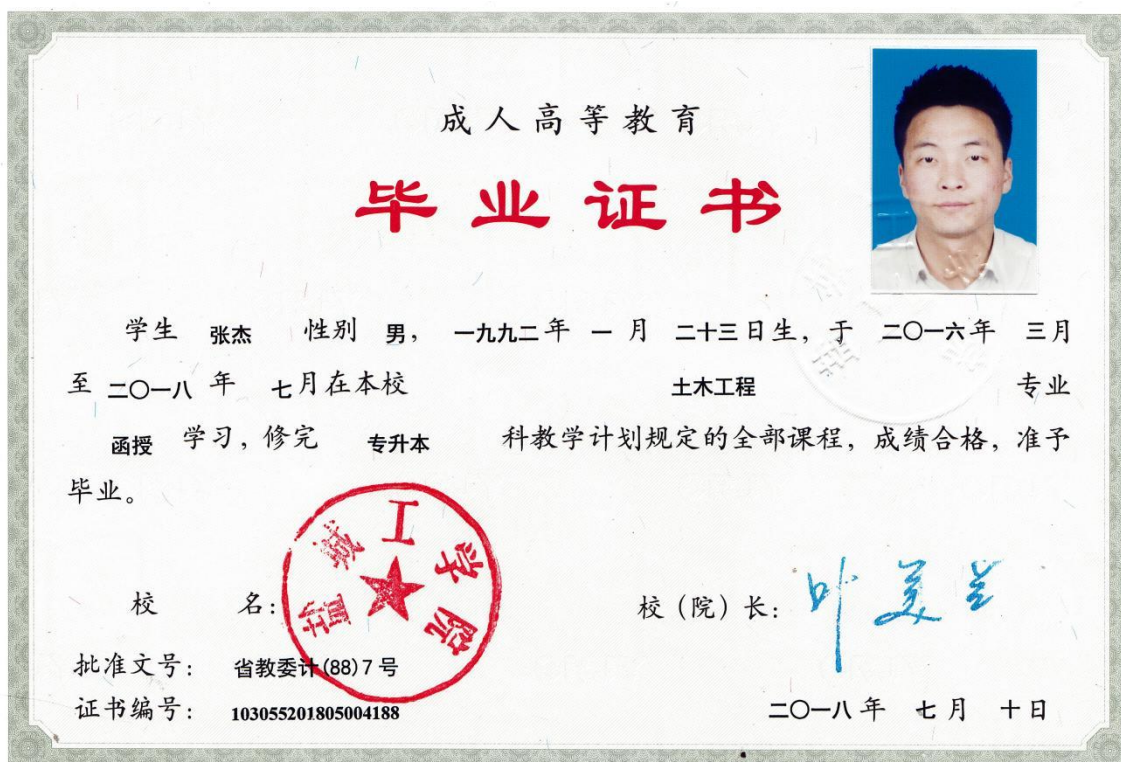 成人高等教育
毕业证书
学生 张杰 性别 男， 一九九二年 一 月 二十三日生，于 二〇一六年 三月
至 二〇一八 年 七月在本校 土木工程 专业
函授 学习，修完 专升本 科教学计划规定的全部课程，成绩合格，准予
毕业。
盐城工学院
校 名：
校（院）长：叶美兰
批准文号： 省教委计(88)7号
证书编号： 103055201805004188
二〇一八 年 七月 十日